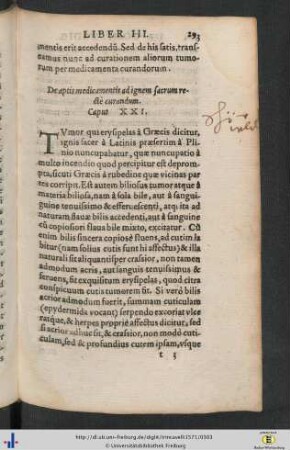 LIBER III. 293
mentis erit accedendũ. Sed de his satis, trans-
eamus nunc ad curationem aliorum tumo-
rum per medicamenta curandorum.
De aptis medicamentis ad ignem sacrum re-
ctè curandum.
Caput XXI.
TVmor qui erysipelas à Græcis dicitur,
ignis sacer à Latinis præsertim à Pli-
nio nuncupabatur, quæ nuncupatio à
multo incendio quod percipitur est deprom-
pta, sicuti Græcis à rubedine quæ vicinas par
tes corripit. Est autem biliosus tumor atque à
materia biliosa, nam à sola bile, aut à sangui-
guine tenuissimo & efferuescenti, atq; ita ad
naturam flauæ bilis accedenti, aut à sanguine
cũ copiosiori flaua bile mixto, excitatur. Cũ
enim bilis sincera copiosè fluens, ad cutim la
bitur (nam solius cutis sunt hi affectus) & illa
naturali sit aliquantisper crassior, non tamen
admodum acris, aut sanguis tenuissimus &
feruens, sit exquisitum erysipelas, quod citra
conspicuum cutis tumorem sit. Si verò bilis
acrior admodum fuerit, summam cuticulam
(epydermida vocant) serpendo exoriat vlce
ratque, & herpes propriè affectus dicitur, sed
si acrior adhuc sit, & crassior, non modò cuti-
culam, sed & profundius cutem ipsam, vsque
t 3
http://dl.ub.uni-freiburg.de/diglit/trincavelli1571/0303
© Universitätsbibliothek Freiburg